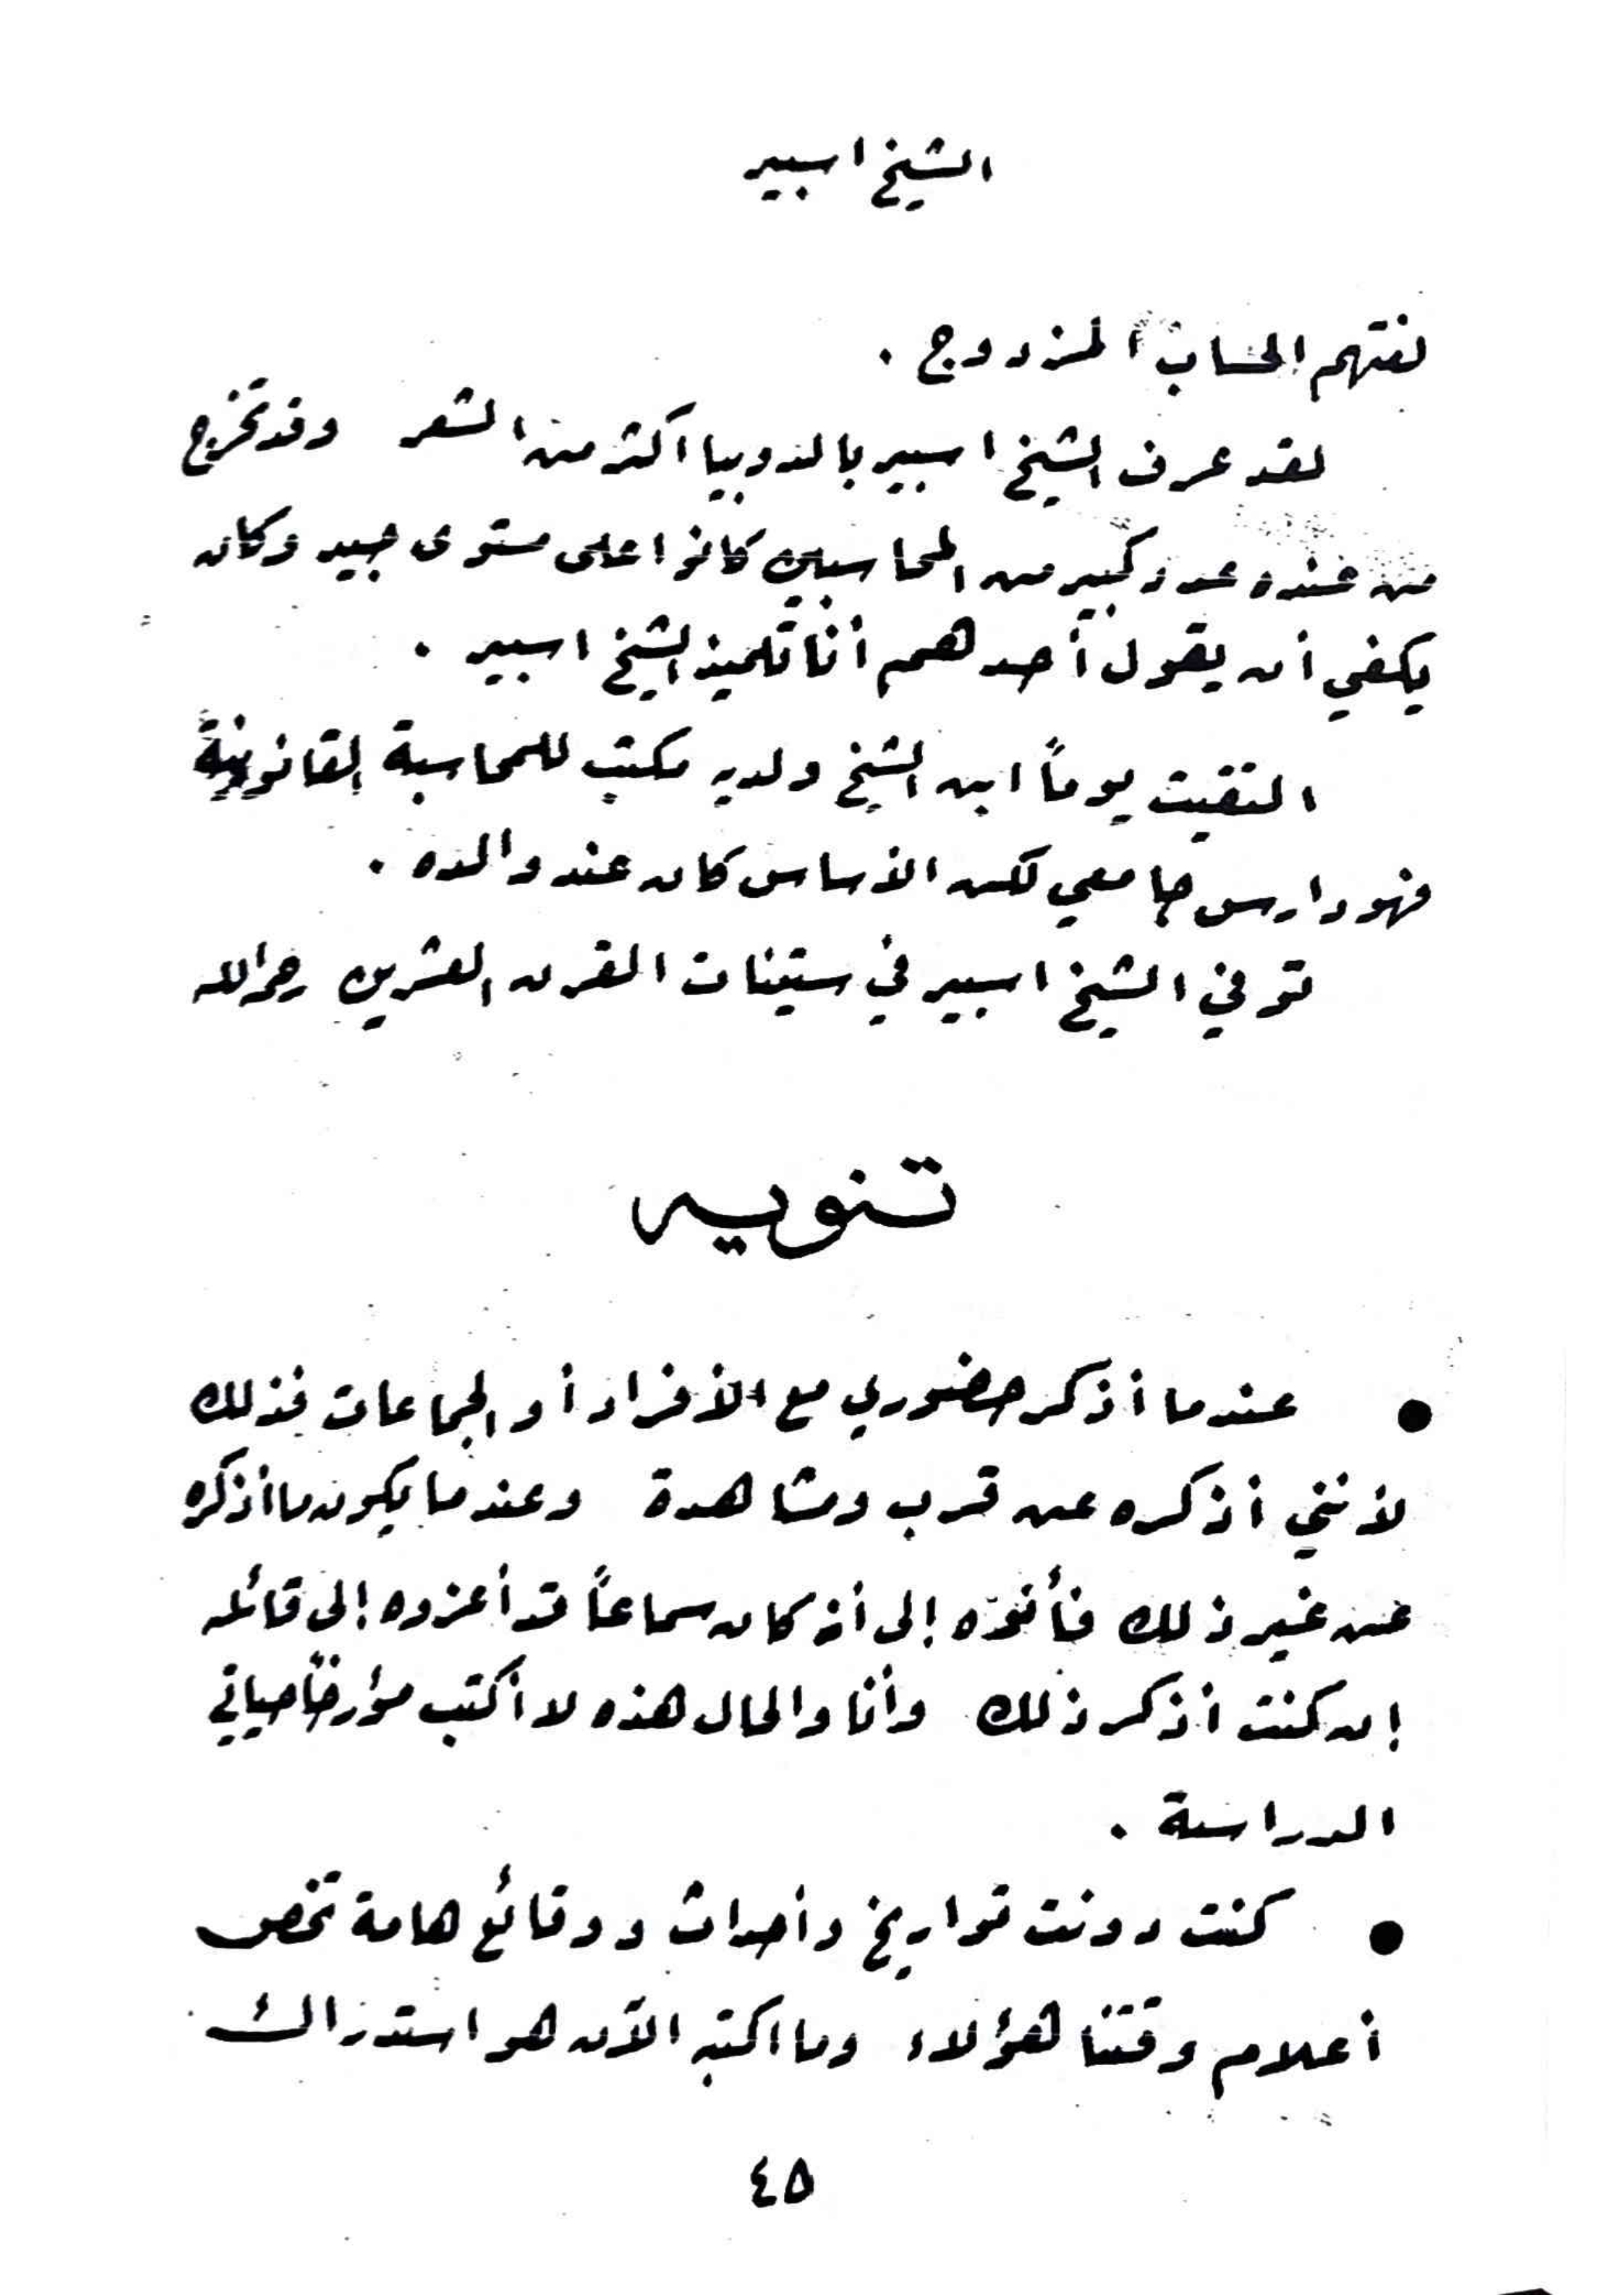 الشيخ اسبير
لفتهم الحساب المزدوج .
لقد عرف الشيخ اسبير بالدوبيا اكثر من الشعر وقد تخرج
من عنده عدد كبير من المحاسبين كانوا على مستوى جيد وكان
يكفي أن يقول أحدهم أنا تلميذ الشيخ اسبير .
التقيت يوماً ابن الشيخ ولديه مكتب للمحاسبة القانونية
فهو دارس جامعي لكن الأساس كان عند والده .
توفي الشيخ اسبير في ستينات القرن العشرين رحمه الله
تنويه
● عندما أذكر حضوري مع الأفراد أو الجماعات فذلك
لأنني أذكره عن قرب ومشاهدة وعندما يكون ما أذكره
عن غير ذلك فأنوّه إلى أنه كان سماعاً قد أعزوه إلى قائله
إن كنت أذكر ذلك وأنا والحال هذه لا أكتب مؤرخاً حياتي
الدراسة .
● كنت دونت تواريخ وأحداث ووقائع هامة تخص
أعلام وقتنا هؤلاء وما اكتبه الآن هو استدراك
٤٥